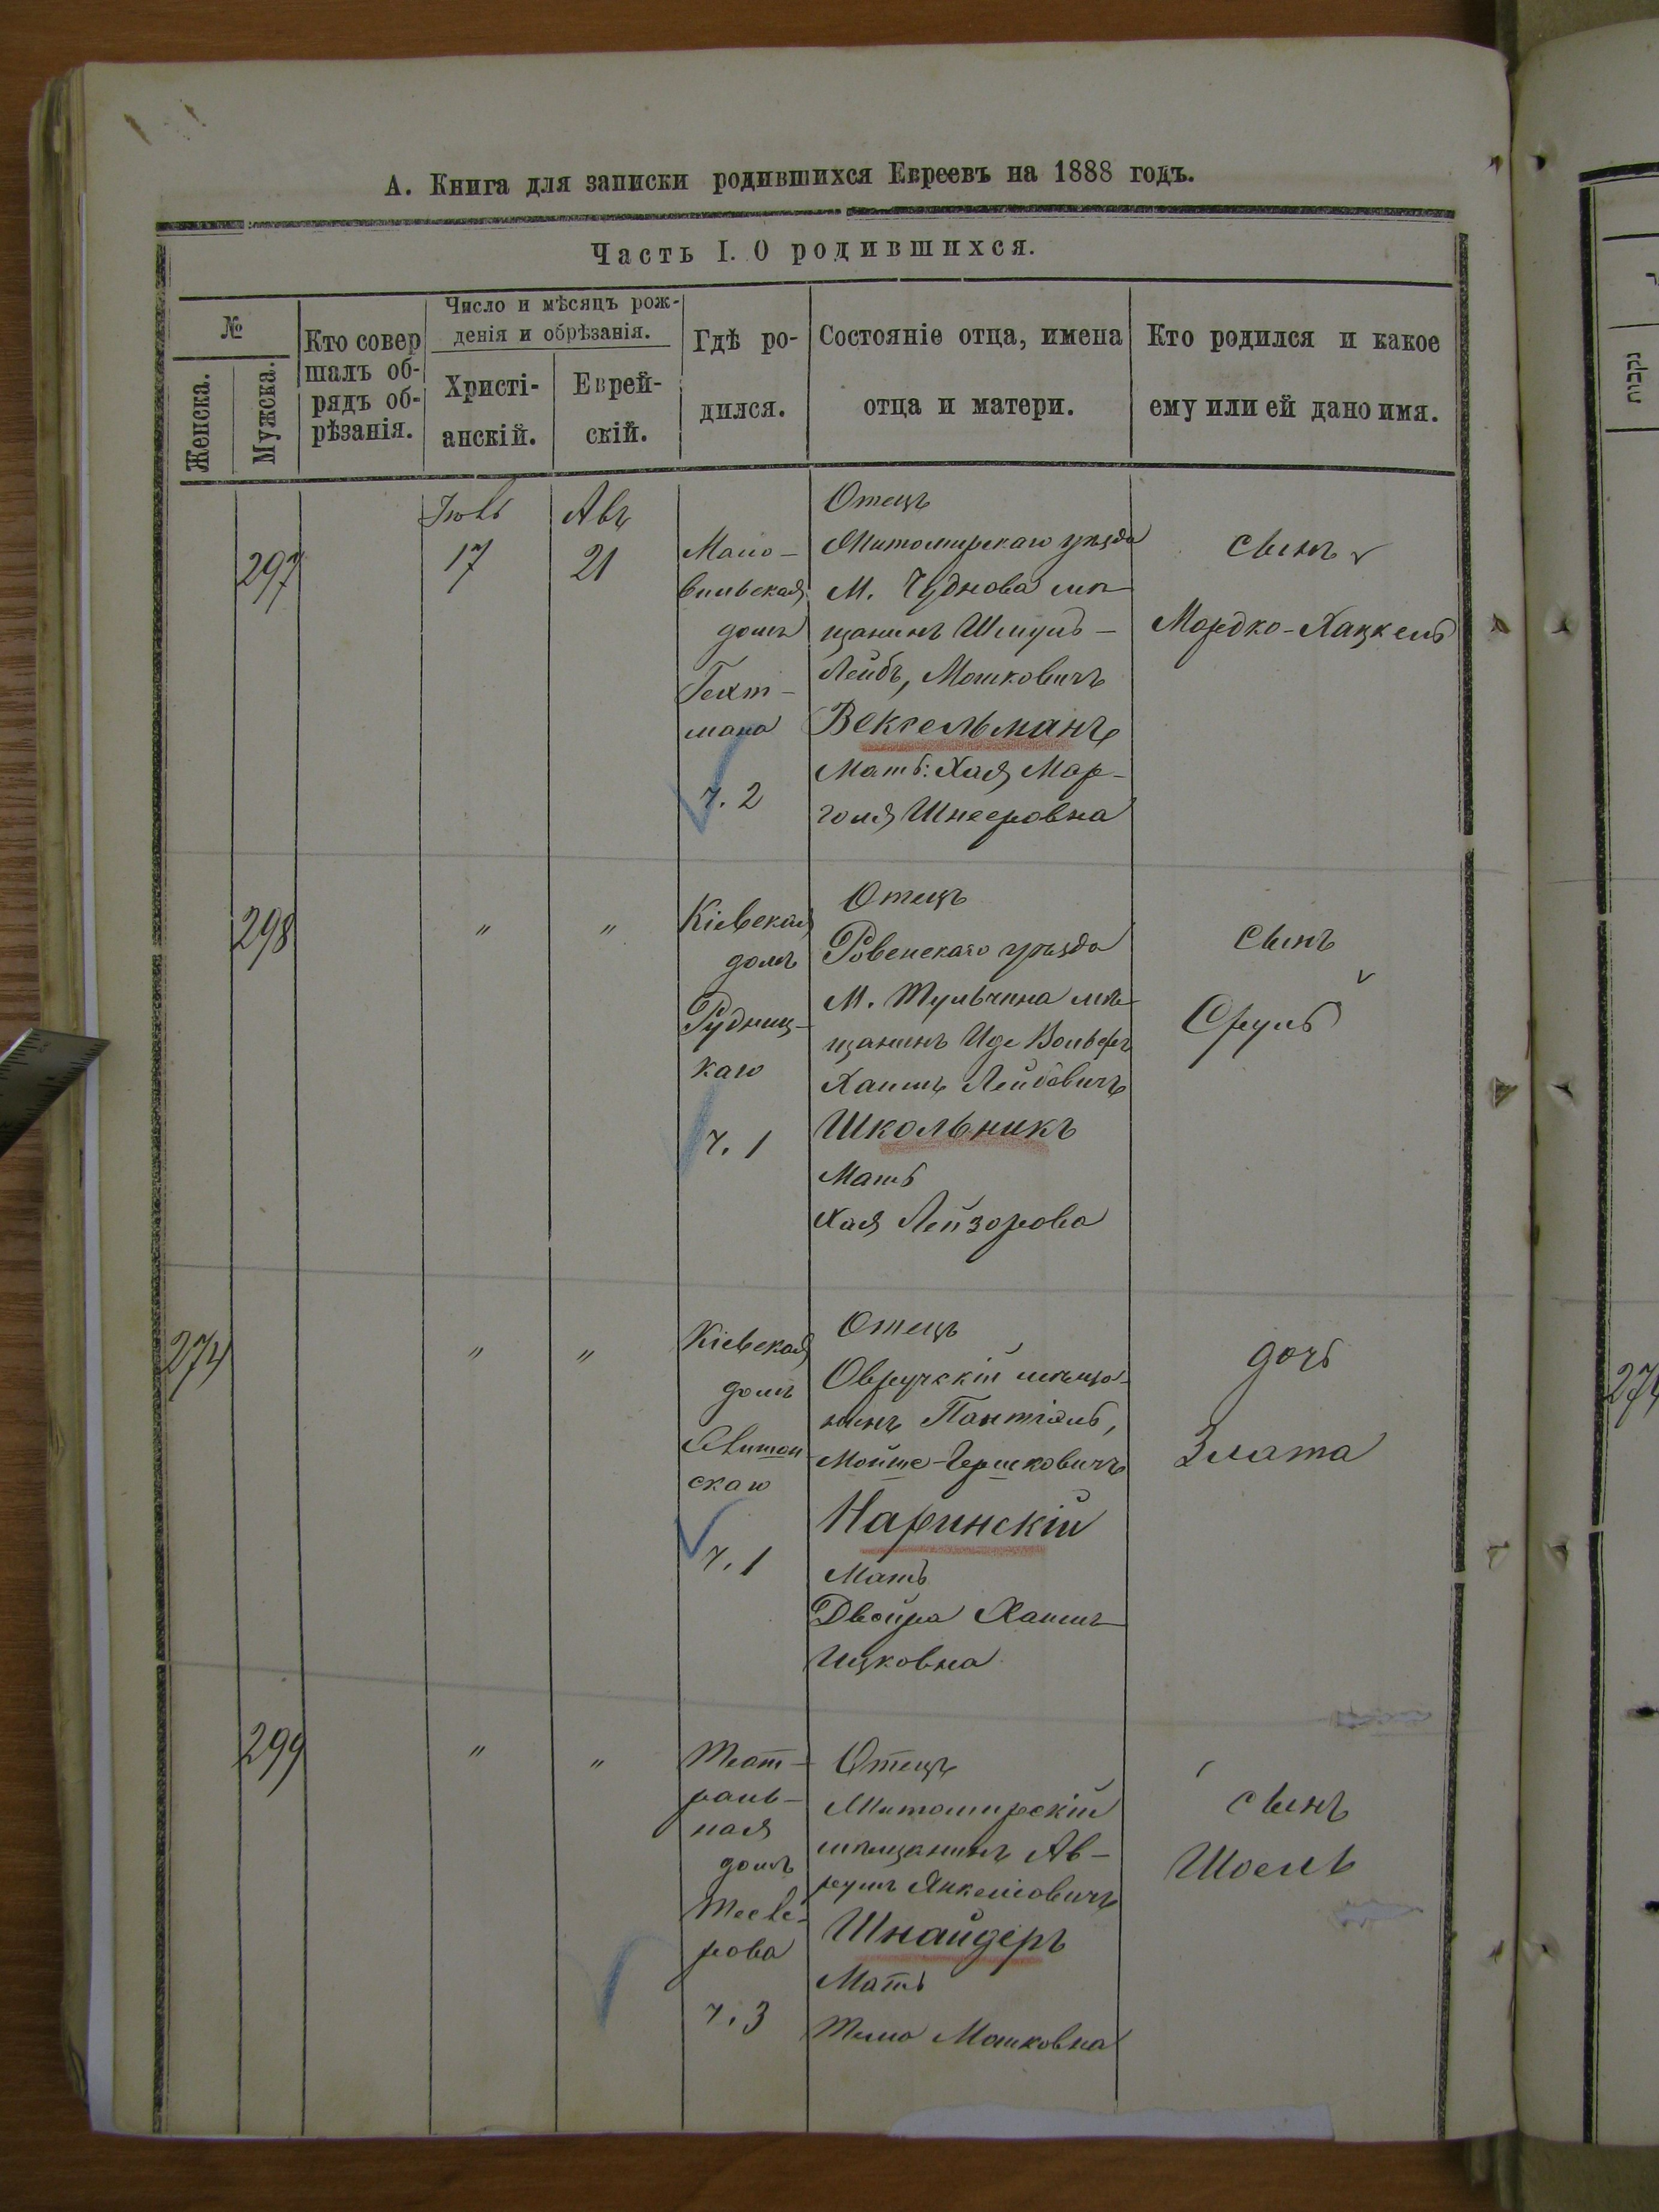 А. Книга для записки родившихся Евреевъ на 1888 годъ.
Часть I. О родившихся.
№
Женска.
Мужска.
Кто совер
шалъ об-
рядъ об-
рѣзанія.
Число и мѣсяцъ рож-
денія и обрѣзанія.
Христі-
анскій.
Еврей-
скій.
Гдѣ ро-
дился.
Состояніе отца, имена
отца и матери.
Кто родился и какое
ему или ей дано имя.
297
Іюль
17
Авъ
21
вильская
домъ
Гехт-
мана
ч. 2
Отецъ
Житомирскаго уѣзда
М. Чуднова мѣ-
щанинъ Шмуль-
Лейбъ, Мошковичъ
Вексельманъ
Мать: Хая Мар-
голя Шнееровна
сынъ
Мордко-Хацкель
298
"
"
Кіевская
домъ
Рудниц-
каго
ч. 1
Отецъ
Ровенскаго уѣзда
М. Тульчина мѣ-
щанинъ Иде Вольфъ
Хаимъ Лейбовичъ
Школьникъ
Мать
Хая Лейзорова
сынъ
Сруль
274
"
"
Кіевская
домъ
скаго
ч. 1
Отецъ
Овручскій мѣща-
нинъ Пантіель,
Мойше-Гершковичъ
Наринскій
Мать
Двойра Хаимъ
Ицковна
дочь
Злата
299
"
"
Теат-
раль-
ная
домъ
рова
ч. 3
Отецъ
Житомирскій
мѣщанинъ Ав-
румъ Янкелiовичъ
Шнайдеръ
Мать
Мошковна
сынъ
Шоель
נקבות
274